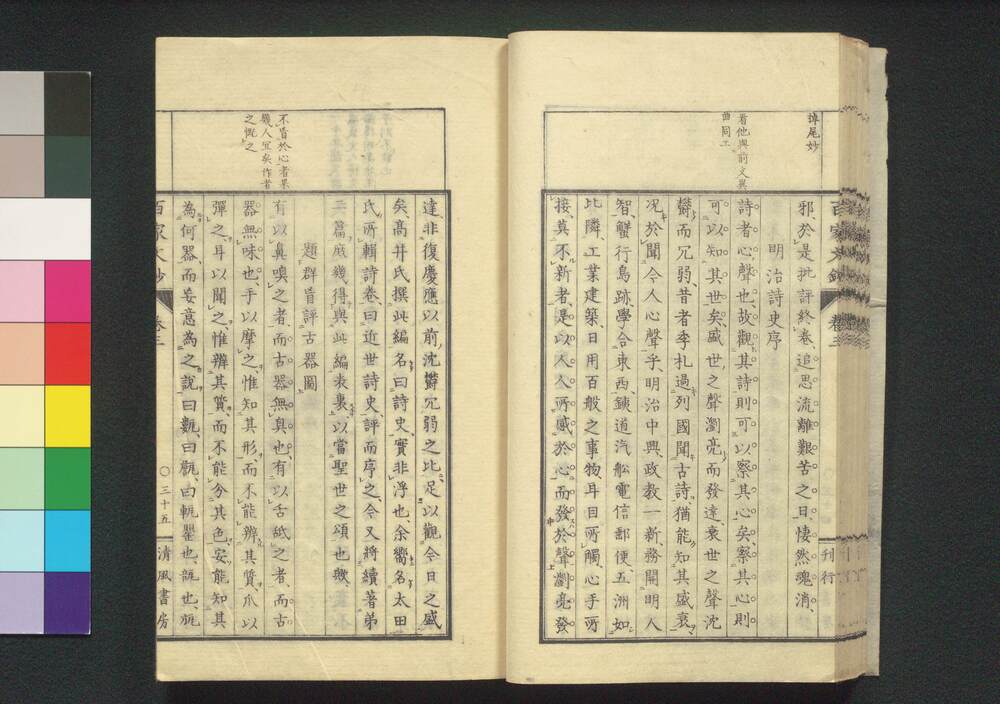 掉尾妙
邪、於是批評終卷、追思流離艱苦之日、悽然魂消、
明治詩史序
看他與前文異
曲同工
詩者心聲也、故觀其詩則可以察其心矣、察其心則
可以知其世矣、盛世之聲瀏亮而發達、衰世之聲沈
鬱而冗弱、昔者季札過列國聞古詩、猶能知其盛衰、
况於聞今人心聲乎、明治中興、政教一新、務開明人
智、蟹行鳥跡、學合東西、鐵道汽船、電信郵便、五洲如
比隣、工業建築、日用百般之事物、耳目所觸、心手所
接、莫不新者、是以人人所感於心而發於聲、瀏亮發
達、非復慶應以前、沈鬱冗弱之比、足以觀今日之盛
矣、髙井氏撰此編、名曰詩史、實非浮也、余嚮名太田
氏所輯詩卷曰近世詩史、評而序之、今又將續著第
三篇、庶幾得與此編表裏、以當聖世之頌也歟、
題群盲評古器圖
不盲於心者果
幾人宜矣作者
之慨之
有以鼻嗅之者、而古器無臭也、有以舌舐之者、而古
器無味也、手以摩之、惟知其形、而不能辨其質、爪以
彈之、耳以聞之、惟辨其質、而不能分其色、安能知其
為何器、而妄意為之說、曰甎、曰甌、曰甒、罌也、瓿也、瓶
百家文鈔
卷三
○三十五
清風書房
百家文鈔
卷三
刊行